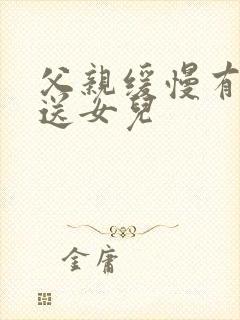 父親缓慢有
送女兒
金庸